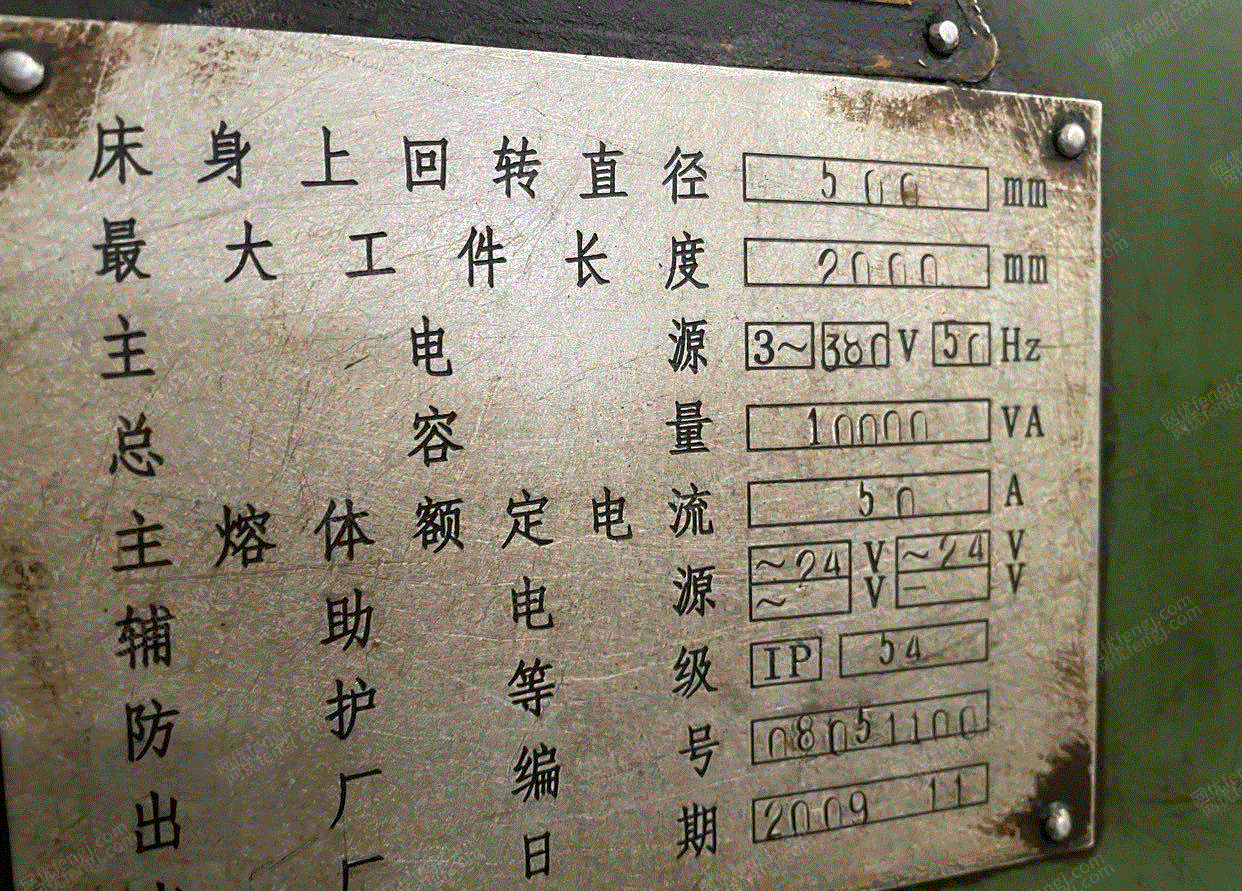 床身上回转直径 500 mm
最大工件长度 2000 mm
主电源 3~ 380 V 50 Hz
总容量 10000 VA
主熔体额定电流 50 A
辅助电源 ~24 V ~24 V
~ V - V
防护等级 IP 54
出厂编号 08051100
厂日期 2009 11